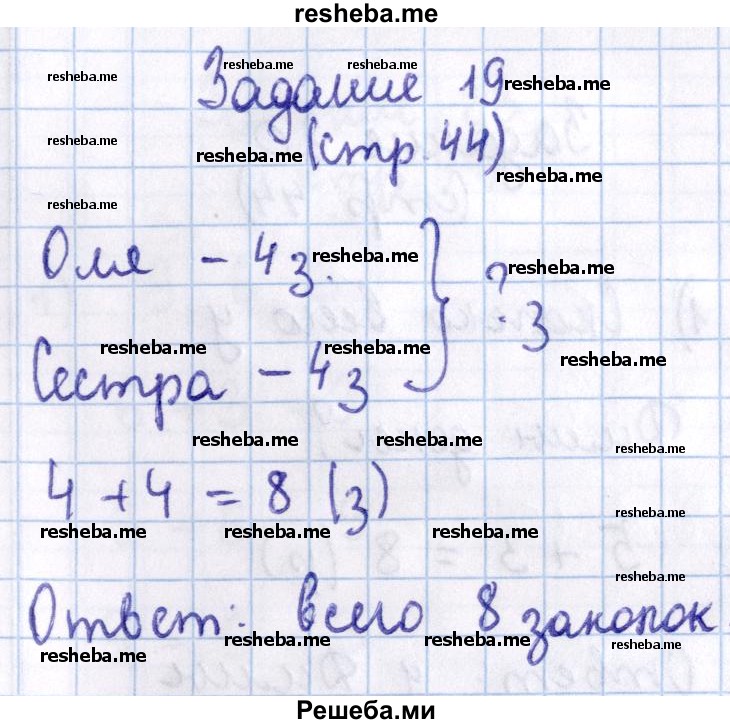 resheba.me
resheba.me resheba.me resheba.me
Задание 19 resheba.me
resheba.me
resheba.me (стр. 44)
resheba.me
resheba.me
Оля - 4 з. resheba.me } ? з resheba.me
resheba.me resheba.me resheba.me
Сестра - 4 з
resheba.me resheba.me resheba.me
4 + 4 = 8 (з)
resheba.me resheba.me resheba.me resheba.me
resheba.me
Ответ: всего 8 заколок.
resheba.me resheba.me resheba.me resheba.me
Решеба.ми